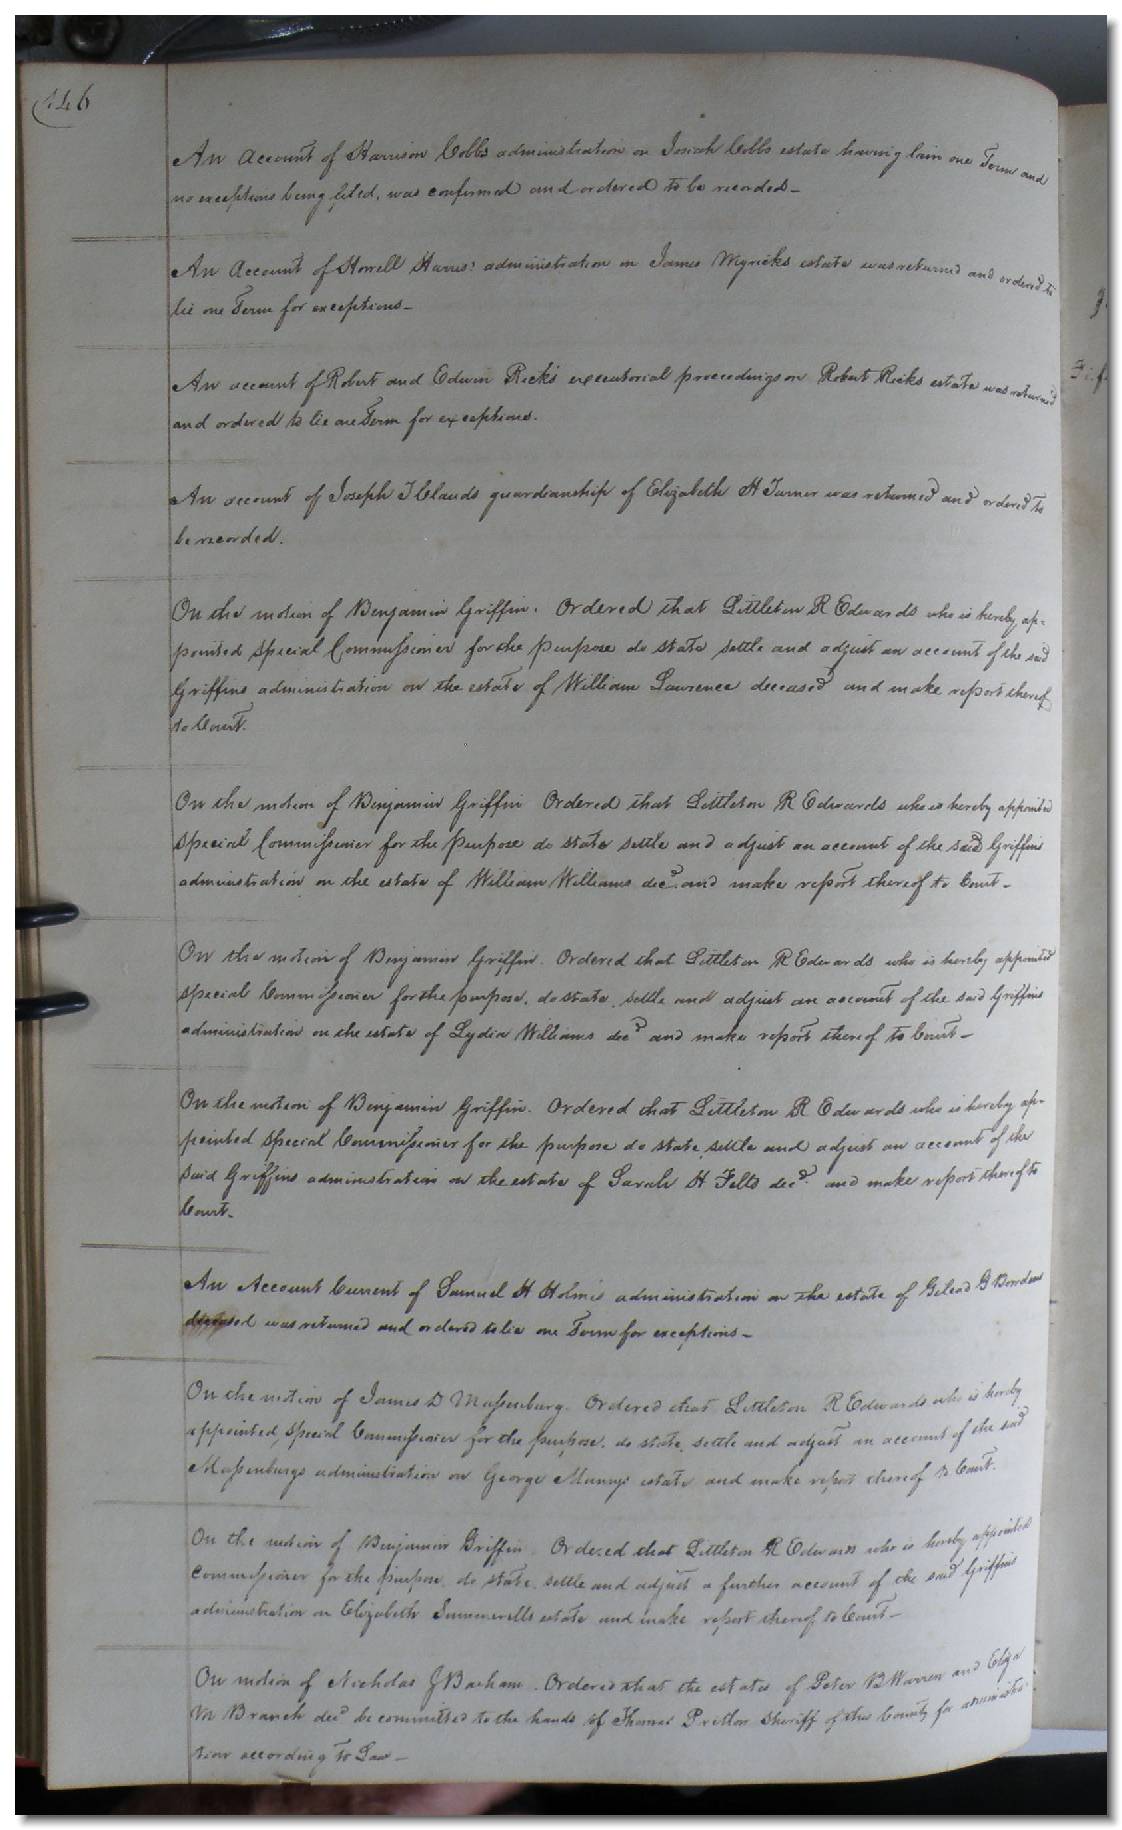 146
An Account of Harrison Cobbs administration on Josiah Cobbs estate having lain one Term and
no exceptions being filed, was confirmed and ordered to be recorded-
An Account of Howell Harris' administration on James Myricks estate was returned and ordered to
lie one Term for exceptions-
An account of Robert and Edwin Ricks executorial proceedings on Robert Ricks estate was returned
and ordered to lie one Term for exceptions.
An account of Joseph T Clauds guardianship of Elizabeth H Turner was returned and ordered to
be recorded.
On the motion of Benjamin Griffin. Ordered that Littleton R Edwards who is hereby ap-
pointed Special Commissioner for the purpose do state settle and adjust an account of the said
Griffins administration on the estate of William Lawrence deceased and make report thereof
to Court.
On the motion of Benjamin Griffin Ordered that Littleton R Edwards who is hereby appointed
Special Commissioner for the purpose do state settle and adjust an account of the said Griffins
administration on the estate of William Williams decd. and make report thereof to Court-
On the motion of Benjamin Griffin. Ordered that Littleton R Edwards who is hereby appointed
special Commissioner for the purpose, do state, settle and adjust an account of the said Griffins
administration on the estate of Lydia Williams decd and make report thereof to Court-
On the motion of Benjamin Griffin. Ordered that Littleton R Edwards who is hereby ap-
pointed Special Commissioner for the purpose do state, settle and adjust an account of the
said Griffins administration on the estate of Sarah H Felts decd. and make report thereof to
Court-
An Account Current of Samuel H Holmes administration on the estate of Gilead G Bowdens
deceased was returned and ordered to lie one Term for exceptions-
On the motion of James D Massenburg. Ordered that Littleton R Edwards who is hereby
appointed, Special Commissioner for the purpose, do state, settle and adjust an account of the said
Massenburgs administration on George estate and make report thereof to Court.
On the motion of Benjamin Griffin. Ordered that Littleton R Edwards who is hereby appointed
Commissioner for the purpose, do state, settle and adjust a further account of the said Griffins
administration on Elizabeth Summerells estate and make report thereof to Court-
On motion of Nicholas J Barham. Ordered that the estates of Peter B Warren and Eliza
M Branch decd be committed to the hands of Thomas Pretlow Sheriff of this County for administra-
tion according to Law-